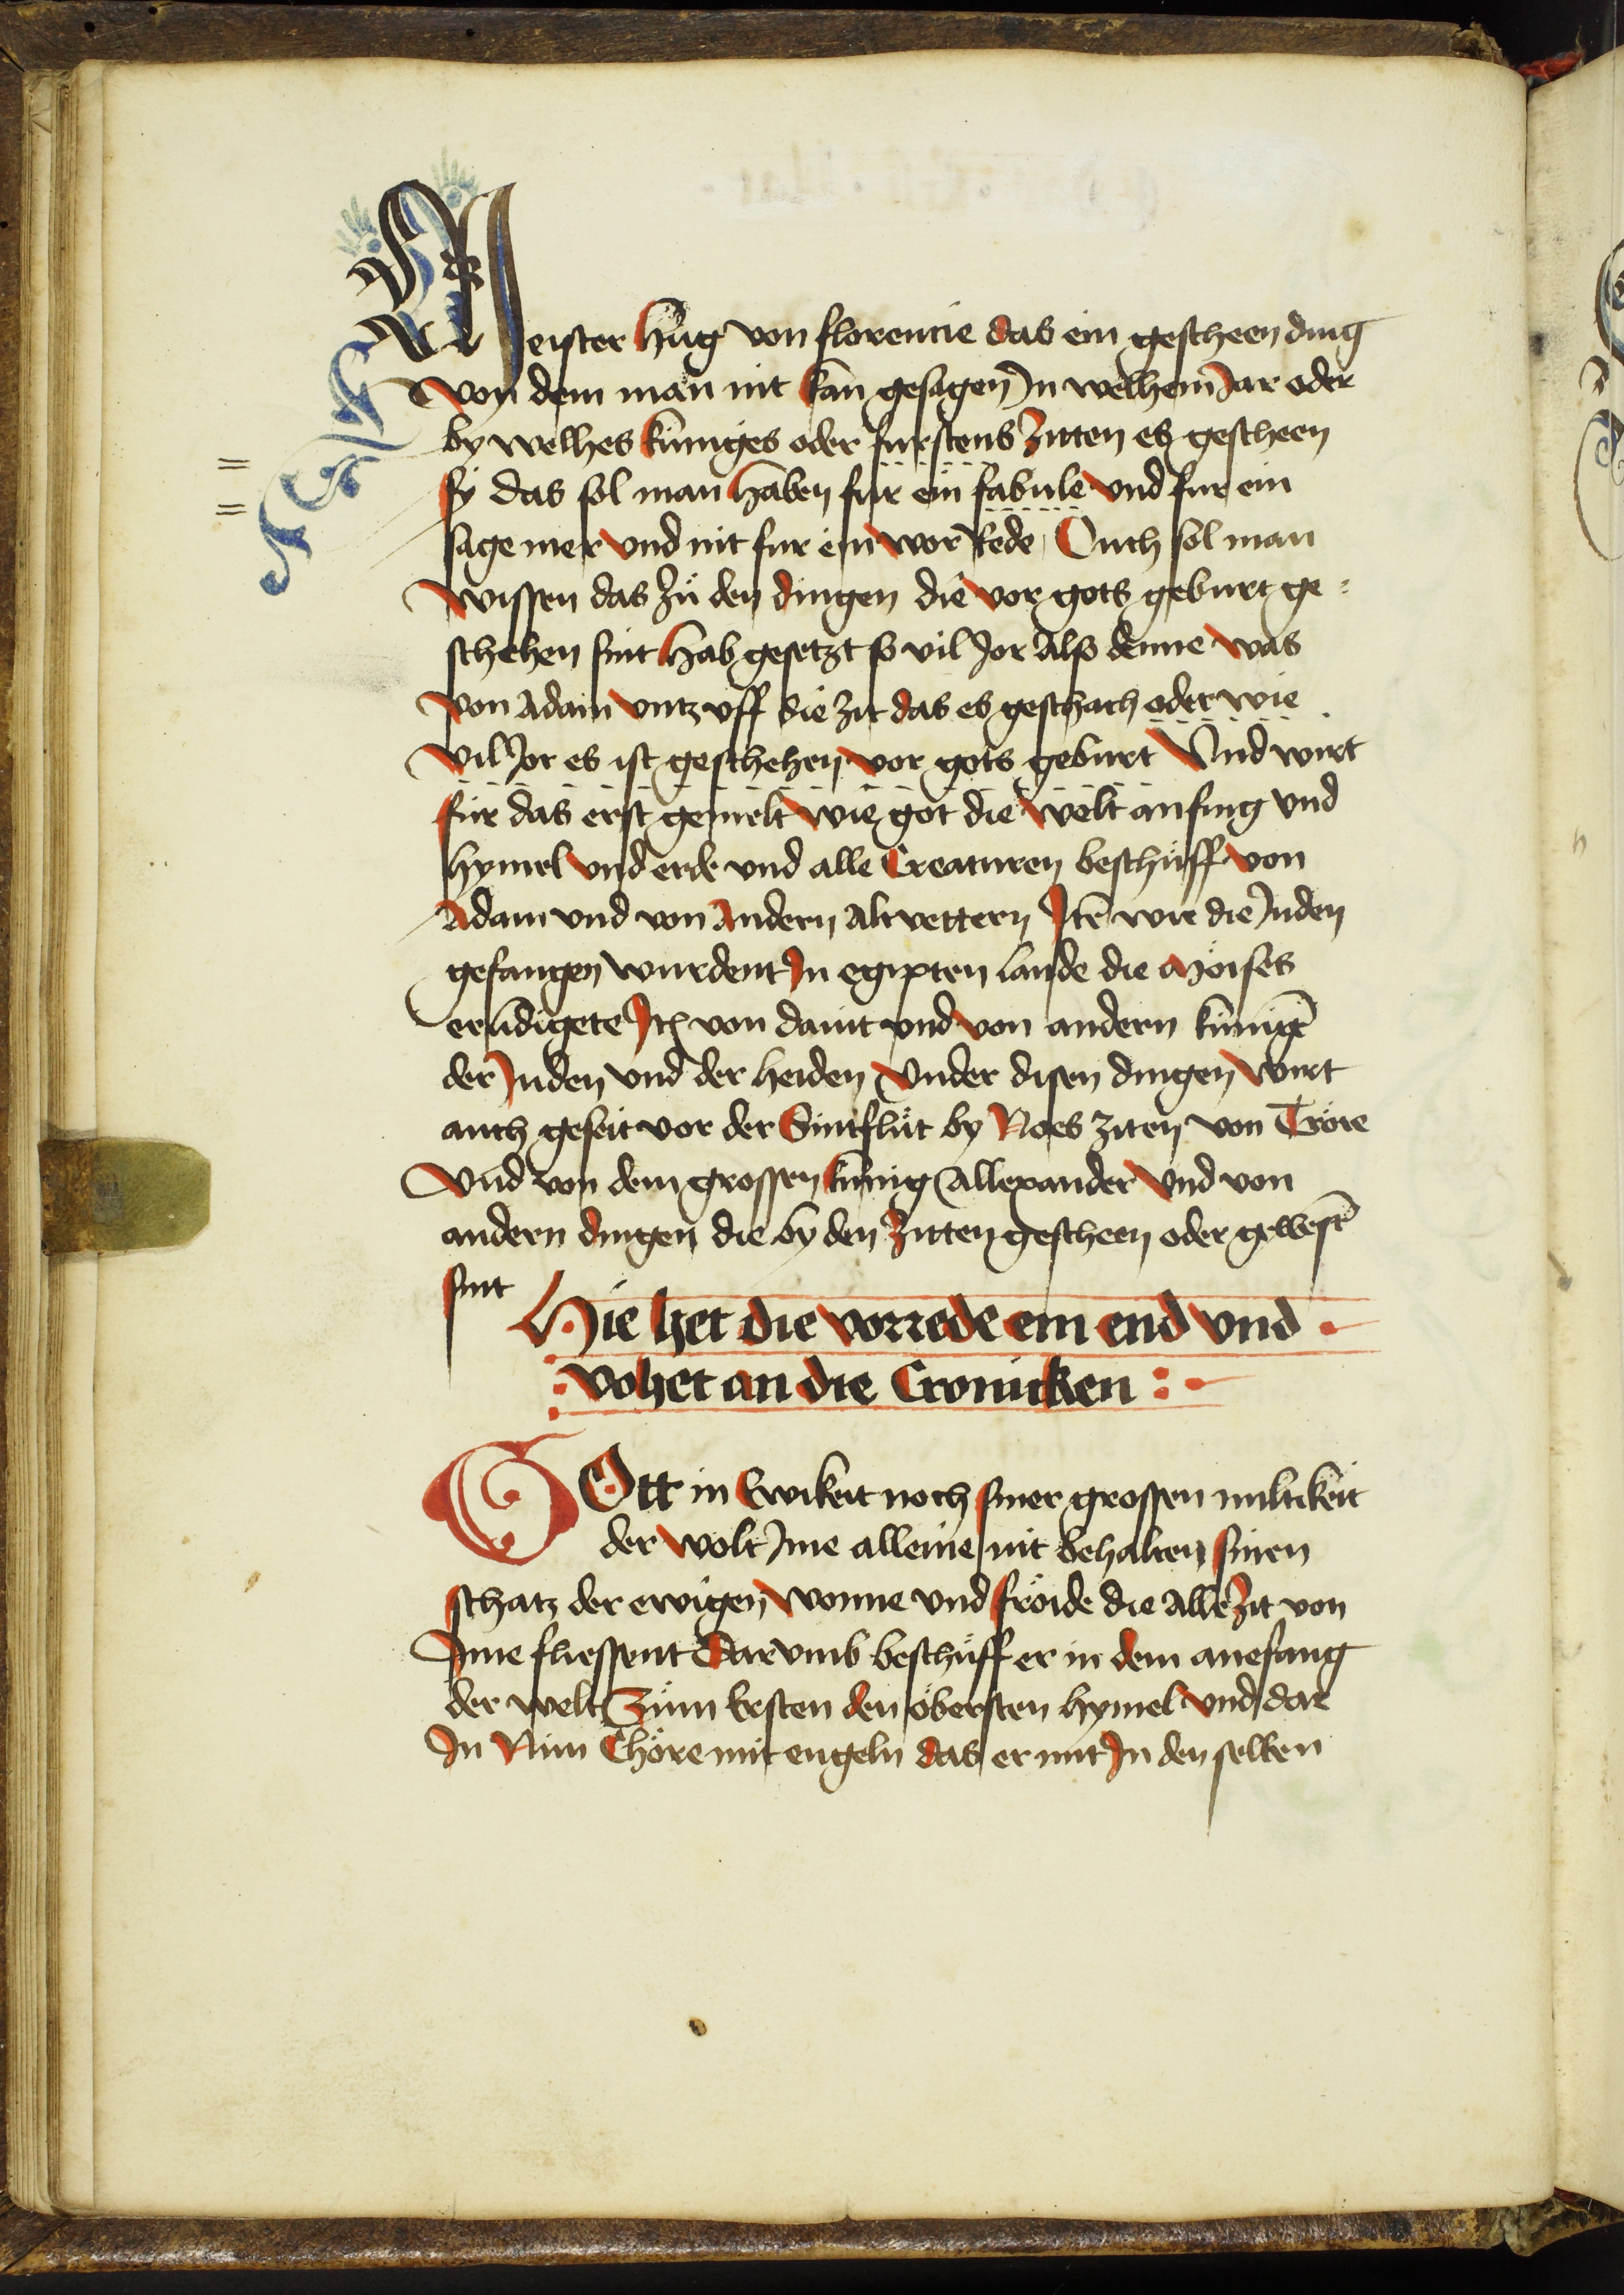 Meister Hug von florencie das ein gescheen ding
von dem man nit kan gesagen Jn welhem Jar oder
by welhes kuniges oder furstens zitten es gescheen
sy das sol man haben fur ein fabule vnd fur ein
sagemer vnd nit fur ein wor Rede Ouch sol man
wissen das zů den dingen die vor gots geburt ge=
schehen sint hab gesetzt so vil Jor Also denne was
von Adam vntz vff die zit das es geschach oder wie
vil Jor es ist geschehen vor gots geburt Vnd wirt
fur das erst gemelt wie got die welt anfing vnd
hymel vnd erde vnd alle Creaturen beschůff von
Adam vnd von Andern Altvettern Jtē wie die Juden
gefangen wurdent Jn egipten lande die Moises
erludigete Jtē von dauit vnd von andern kunigē
der Juden vnd der heiden Vnder disen dingen wirt
auch geseit vor der Sintflůt by Noes ziten von Troie
Vnd von dem grossen kunig Allexander Vnd von
andern dingen die by den zitten gescheen oder gewesē
sint
Hie het die vorrede ein end vnd
vohet an die Cronicken
GOtt in Ewikeit noch siner grossen miltikeit
der wolt Jme alleine nit behalten sinen
schatz der ewigen wonne vnd froide die Alle zit von
Jme fliessent Darvmb beschůff er in dem anefang
der welt Zům Ersten den öbersten hymel vnd dar
Jn Nün Chöre mit engeln das er mit Jn den selben